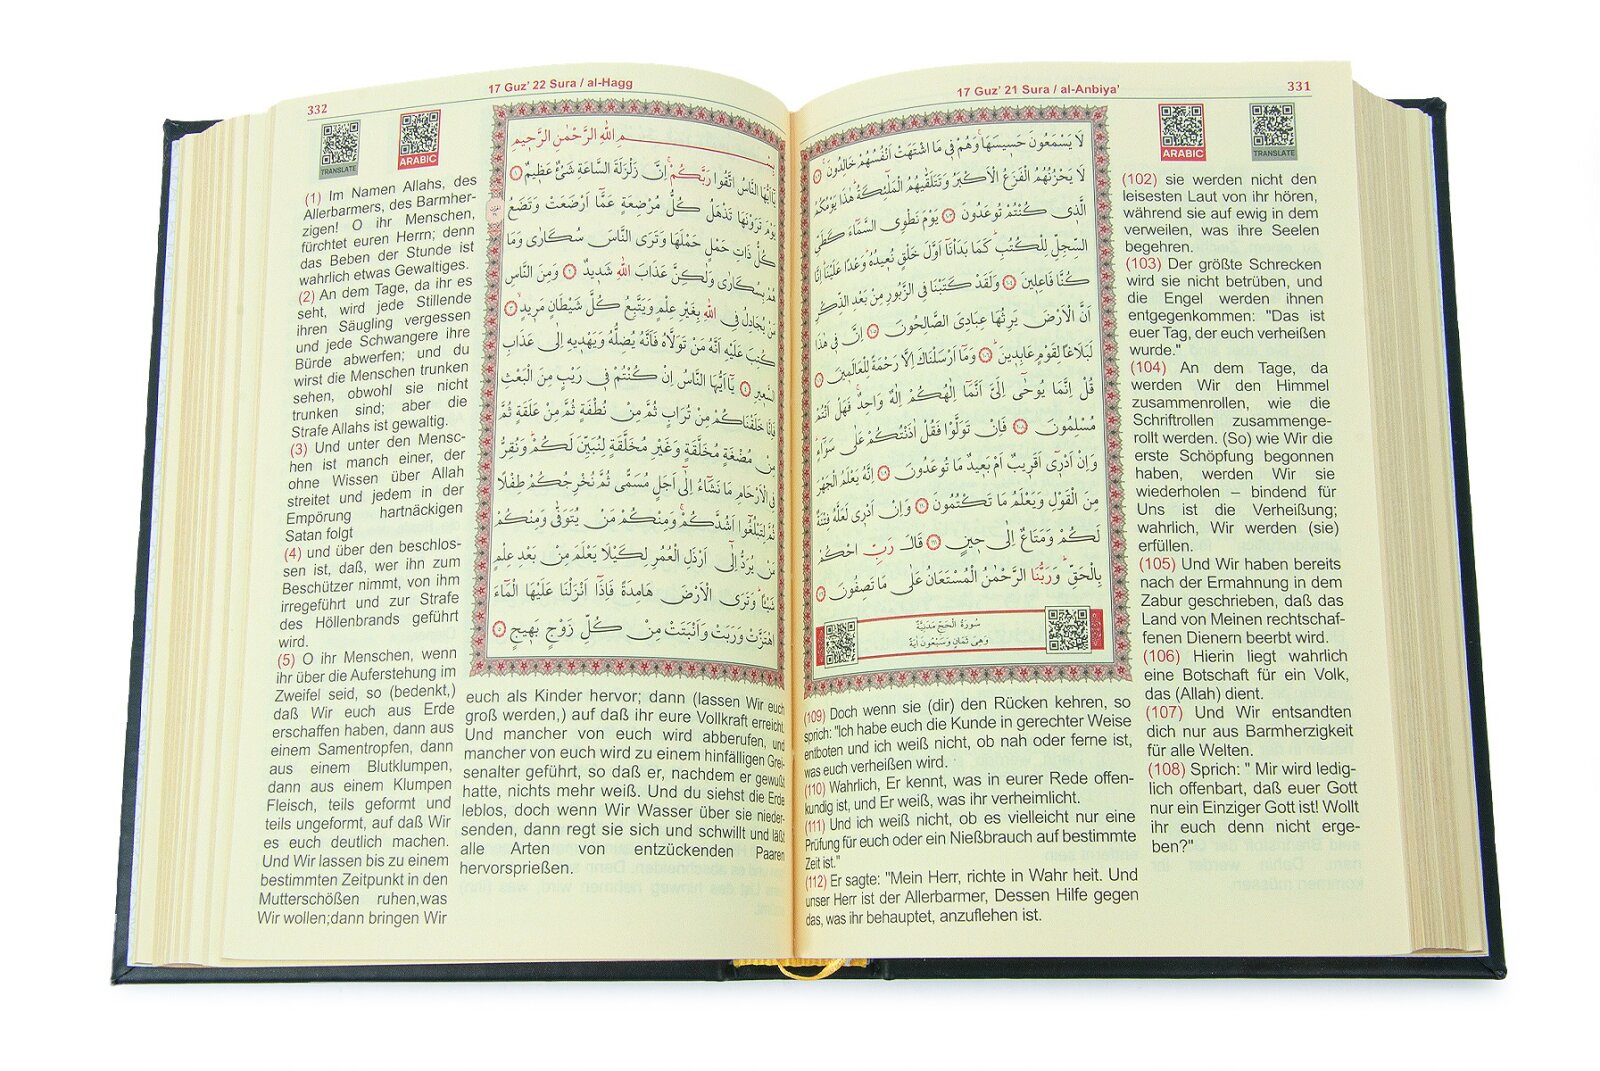 17 Guz' 21 Sura / al-Anbiya'
331
ARABIC
TRANSLATE
لَا يَسْمَعُونَ حَسِيسَهَا وَهُمْ فِى مَا اشْتَهَتْ اَنْفُسُهُمْ خَالِدُونَ ١٠٢
لَا يَحْزُنُهُمُ الْفَزَعُ الْاَكْبَرُ وَتَتَلَقّٰيهُمُ الْمَلٰٓئِكَةُ هٰذَا يَوْمُكُمُ
الَّذِى كُنْتُمْ تُوعَدُونَ ١٠٣ يَوْمَ نَطْوِى السَّمَٓاءَ كَطَىِّ
السِّجِلِّ لِلْكُتُبِ كَمَا بَدَاْنَٓا اَوَّلَ خَلْقٍ نُعِيدُهُ وَعْدًا عَلَيْنَا اِنَّا
كُنَّا فَاعِلِينَ ١٠٤ وَلَقَدْ كَتَبْنَا فِى الزَّبُورِ مِنْ بَعْدِ الذِّكْرِ
اَنَّ الْاَرْضَ يَرِثُهَا عِبَادِىَ الصَّالِحُونَ ١٠٥ اِنَّ فِى هٰذَا
لَبَلَاغًا لِقَوْمٍ عَابِدِينَ ١٠٦ وَمَٓا اَرْسَلْنَاكَ اِلَّا رَحْمَةً لِلْعَالَمِينَ ١٠٧
قُلْ اِنَّمَا يُوحٰٓى اِلَىَّ اَنَّمَٓا اِلٰهُكُمْ اِلٰهٌ وَاحِدٌ فَهَلْ اَنْتُمْ
مُسْلِمُونَ ١٠٨ فَاِنْ تَوَلَّوْا فَقُلْ اٰذَنْتُكُمْ عَلٰى سَوَٓاءٍ
وَاِنْ اَدْرِٓى اَقَرِيبٌ اَمْ بَعِيدٌ مَا تُوعَدُونَ ١٠٩ اِنَّهُ يَعْلَمُ الْجَهْرَ
مِنَ الْقَوْلِ وَيَعْلَمُ مَا تَكْتُمُونَ ١١٠ وَاِنْ اَدْرِى لَعَلَّهُ فِتْنَةٌ
لَكُمْ وَمَتَاعٌ اِلٰى حِينٍ ١١١ قَالَ رَبِّ احْكُمْ
بِالْحَقِّ وَرَبُّنَا الرَّحْمٰنُ الْمُسْتَعَانُ عَلٰى مَا تَصِفُونَ ١١٢
سُورَةُ الْحَجِّ مَدَنِيَّةٌ
وَهِىَ ثَمَانٍ وَسَبْعُونَ اٰيَةً
(102) sie werden nicht den
leisesten Laut von ihr hören,
während sie auf ewig in dem
verweilen, was ihre Seelen
begehren.
(103) Der größte Schrecken
wird sie nicht betrüben, und
die Engel werden ihnen
entgegenkommen: "Das ist
euer Tag, der euch verheißen
wurde."
(104) An dem Tage, da
werden Wir den Himmel
zusammenrollen, wie die
Schriftrollen zusammenge-
rollt werden. (So) wie Wir die
erste Schöpfung begonnen
haben, werden Wir sie
wiederholen – bindend für
Uns ist die Verheißung;
wahrlich, Wir werden (sie)
erfüllen.
(105) Und Wir haben bereits
nach der Ermahnung in dem
Zabur geschrieben, daß das
Land von Meinen rechtschaf-
fenen Dienern beerbt wird.
(106) Hierin liegt wahrlich
eine Botschaft für ein Volk,
das (Allah) dient.
(107) Und Wir entsandten
dich nur aus Barmherzigkeit
für alle Welten.
(108) Sprich: " Mir wird ledig-
lich offenbart, daß euer Gott
nur ein Einziger Gott ist! Wollt
ihr euch denn nicht erge-
ben?"
(109) Doch wenn sie (dir) den Rücken kehren, so
sprich: "Ich habe euch die Kunde in gerechter Weise
entboten und ich weiß nicht, ob nah oder ferne ist,
was euch verheißen wird.
(110) Wahrlich, Er kennt, was in eurer Rede offen-
kundig ist, und Er weiß, was ihr verheimlicht.
(111) Und ich weiß nicht, ob es vielleicht nur eine
Prüfung für euch oder ein Nießbrauch auf bestimmte
Zeit ist."
(112) Er sagte: "Mein Herr, richte in Wahr heit. Und
unser Herr ist der Allerbarmer, Dessen Hilfe gegen
das, was ihr behauptet, anzuflehen ist.
332
17 Guz' 22 Sura / al-Hagg
TRANSLATE
ARABIC
بِسْمِ اللّٰهِ الرَّحْمٰنِ الرَّحِيمِ
يَٓا اَيُّهَا النَّاسُ اتَّقُوا رَبَّكُمْ اِنَّ زَلْزَلَةَ السَّاعَةِ شَىْءٌ عَظِيمٌ ١
يَوْمَ تَرَوْنَهَا تَذْهَلُ كُلُّ مُرْضِعَةٍ عَمَّٓا اَرْضَعَتْ وَتَضَعُ
كُلُّ ذَاتِ حَمْلٍ حَمْلَهَا وَتَرَى النَّاسَ سُكَارٰى وَمَا
هُمْ بِسُكَارٰى وَلٰكِنَّ عَذَابَ اللّٰهِ شَدِيدٌ ٢ وَمِنَ النَّاسِ
مَنْ يُجَادِلُ فِى اللّٰهِ بِغَيْرِ عِلْمٍ وَيَتَّبِعُ كُلَّ شَيْطَانٍ مَرِيدٍ ٣
كُتِبَ عَلَيْهِ اَنَّهُ مَنْ تَوَلَّاهُ فَاَنَّهُ يُضِلُّهُ وَيَهْدِيهِ اِلٰى عَذَابِ
السَّعِيرِ ٤ يَٓا اَيُّهَا النَّاسُ اِنْ كُنْتُمْ فِى رَيْبٍ مِنَ الْبَعْثِ
فَاِنَّا خَلَقْنَاكُمْ مِنْ تُرَابٍ ثُمَّ مِنْ نُطْفَةٍ ثُمَّ مِنْ عَلَقَةٍ ثُمَّ
مِنْ مُضْغَةٍ مُخَلَّقَةٍ وَغَيْرِ مُخَلَّقَةٍ لِنُبَيِّنَ لَكُمْ وَنُقِرُّ
فِى الْاَرْحَامِ مَا نَشَٓاءُ اِلٰٓى اَجَلٍ مُسَمًّى ثُمَّ نُخْرِجُكُمْ طِفْلًا
ثُمَّ لِتَبْلُغُٓوا اَشُدَّكُمْ وَمِنْكُمْ مَنْ يُتَوَفّٰى وَمِنْكُمْ
مَنْ يُرَدُّ اِلٰٓى اَرْذَلِ الْعُمُرِ لِكَيْلَا يَعْلَمَ مِنْ بَعْدِ عِلْمٍ
شَيْئًا وَتَرَى الْاَرْضَ هَامِدَةً فَاِذَٓا اَنْزَلْنَا عَلَيْهَا الْمَٓاءَ
اهْتَزَّتْ وَرَبَتْ وَاَنْبَتَتْ مِنْ كُلِّ زَوْجٍ بَهِيجٍ ٥
(1) Im Namen Allahs, des
Allerbarmers, des Barmher-
zigen! O ihr Menschen,
fürchtet euren Herrn; denn
das Beben der Stunde ist
wahrlich etwas Gewaltiges.
(2) An dem Tage, da ihr es
seht, wird jede Stillende
ihren Säugling vergessen
und jede Schwangere ihre
Bürde abwerfen; und du
wirst die Menschen trunken
sehen, obwohl sie nicht
trunken sind; aber die
Strafe Allahs ist gewaltig.
(3) Und unter den Mensc-
hen ist manch einer, der
ohne Wissen über Allah
streitet und jedem in der
Empörung hartnäckigen
Satan folgt
(4) und über den beschlos-
sen ist, daß, wer ihn zum
Beschützer nimmt, von ihm
irregeführt und zur Strafe
des Höllenbrands geführt
wird.
(5) O ihr Menschen, wenn
ihr über die Auferstehung im
Zweifel seid, so (bedenkt,)
daß Wir euch aus Erde
erschaffen haben, dann aus
einem Samentropfen, dann
aus einem Blutklumpen,
dann aus einem Klumpen
Fleisch, teils geformt und
teils ungeformt, auf daß Wir
es euch deutlich machen.
Und Wir lassen bis zu einem
bestimmten Zeitpunkt in den
Mutterschößen ruhen,was
Wir wollen;dann bringen Wir
euch als Kinder hervor; dann (lassen Wir euch
groß werden,) auf daß ihr eure Vollkraft erreicht.
Und mancher von euch wird abberufen, und
mancher von euch wird zu einem hinfälligen Grei-
senalter geführt, so daß er, nachdem er gewußt
hatte, nichts mehr weiß. Und du siehst die Erde
leblos, doch wenn Wir Wasser über sie nieder-
senden, dann regt sie sich und schwillt und läßt
alle Arten von entzückenden Paaren
hervorsprießen.